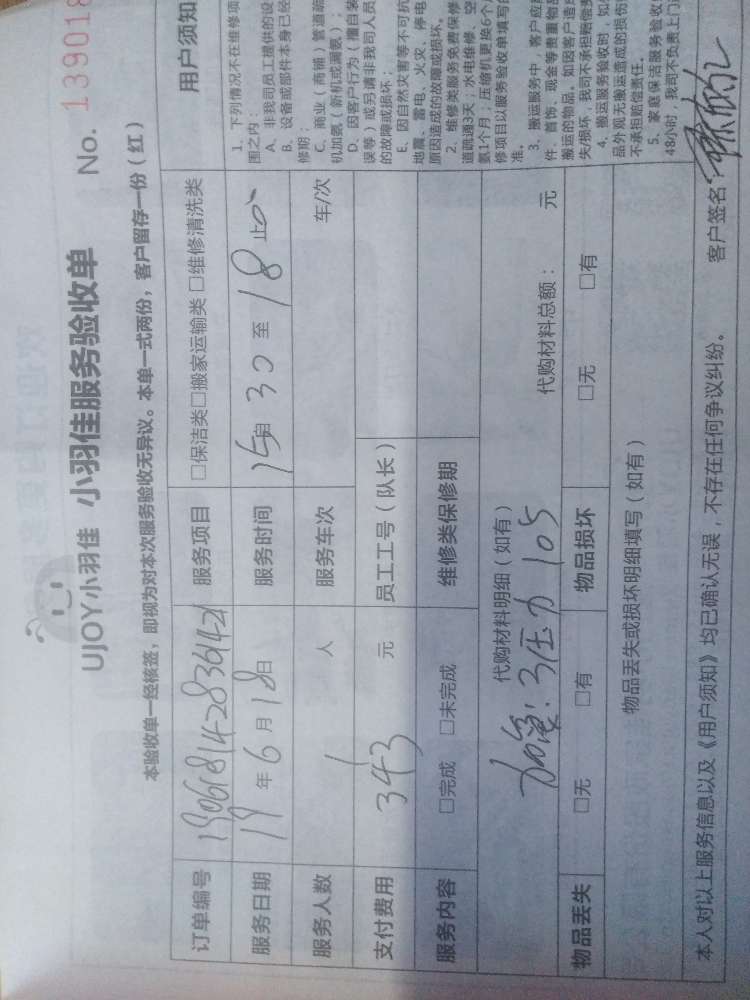 UJOY小羽佳 小羽佳服务验收单 No. 139018
本验收单一经核签，即视为对本次服务验收无异议。本单一式两份，客户留存一份（红）
订单编号
服务项目 □保洁类□搬家运输类 □维修清洗类
服务日期 19 年 6 月 18 日 服务时间 15 自 30 至 18 止
服务人数 1 人 服务车次 车/次
支付费用 343 元 员工工号（队长）
服务内容 □完成 □未完成 维修类保修期
代购材料明细（如有） 代购材料总额： 元
压力 105
物品丢失 □无 □有 物品损坏 □无 □有
物品丢失或损坏明细填写（如有）
本人对以上服务信息以及《用户须知》均已确认无误，不存在任何争议纠纷。 客户签名：
用户须知
1、下列情况不在维修项
围之内：
A、非我司员工提供的设
B、设备或部件本身已经
修期；
C、商业（商铺）管道疏
机加氨（新机或漏氨）；
D、因客户行为（擅自装
误等）或另请非我司人员
的故障或损坏；
E、因自然灾害等不可抗
地震、雷电、火灾、停电
原因造成的故障或损坏。
2、维修类服务免费保修
道疏通3天；水电维修、空
氨1个月；压缩机更换6个
修项目以服务验收单填写的
准。
3、搬运服务中，客户应
件、首饰、现金等贵重物品
搬运的物品。如因客户造成
失/损坏，我司不承担赔偿责
4、搬运服务验收时，如
品外观无搬运造成的损伤
不承担赔偿责任。
5、家庭保洁服务验收
48小时，我司不负责上门